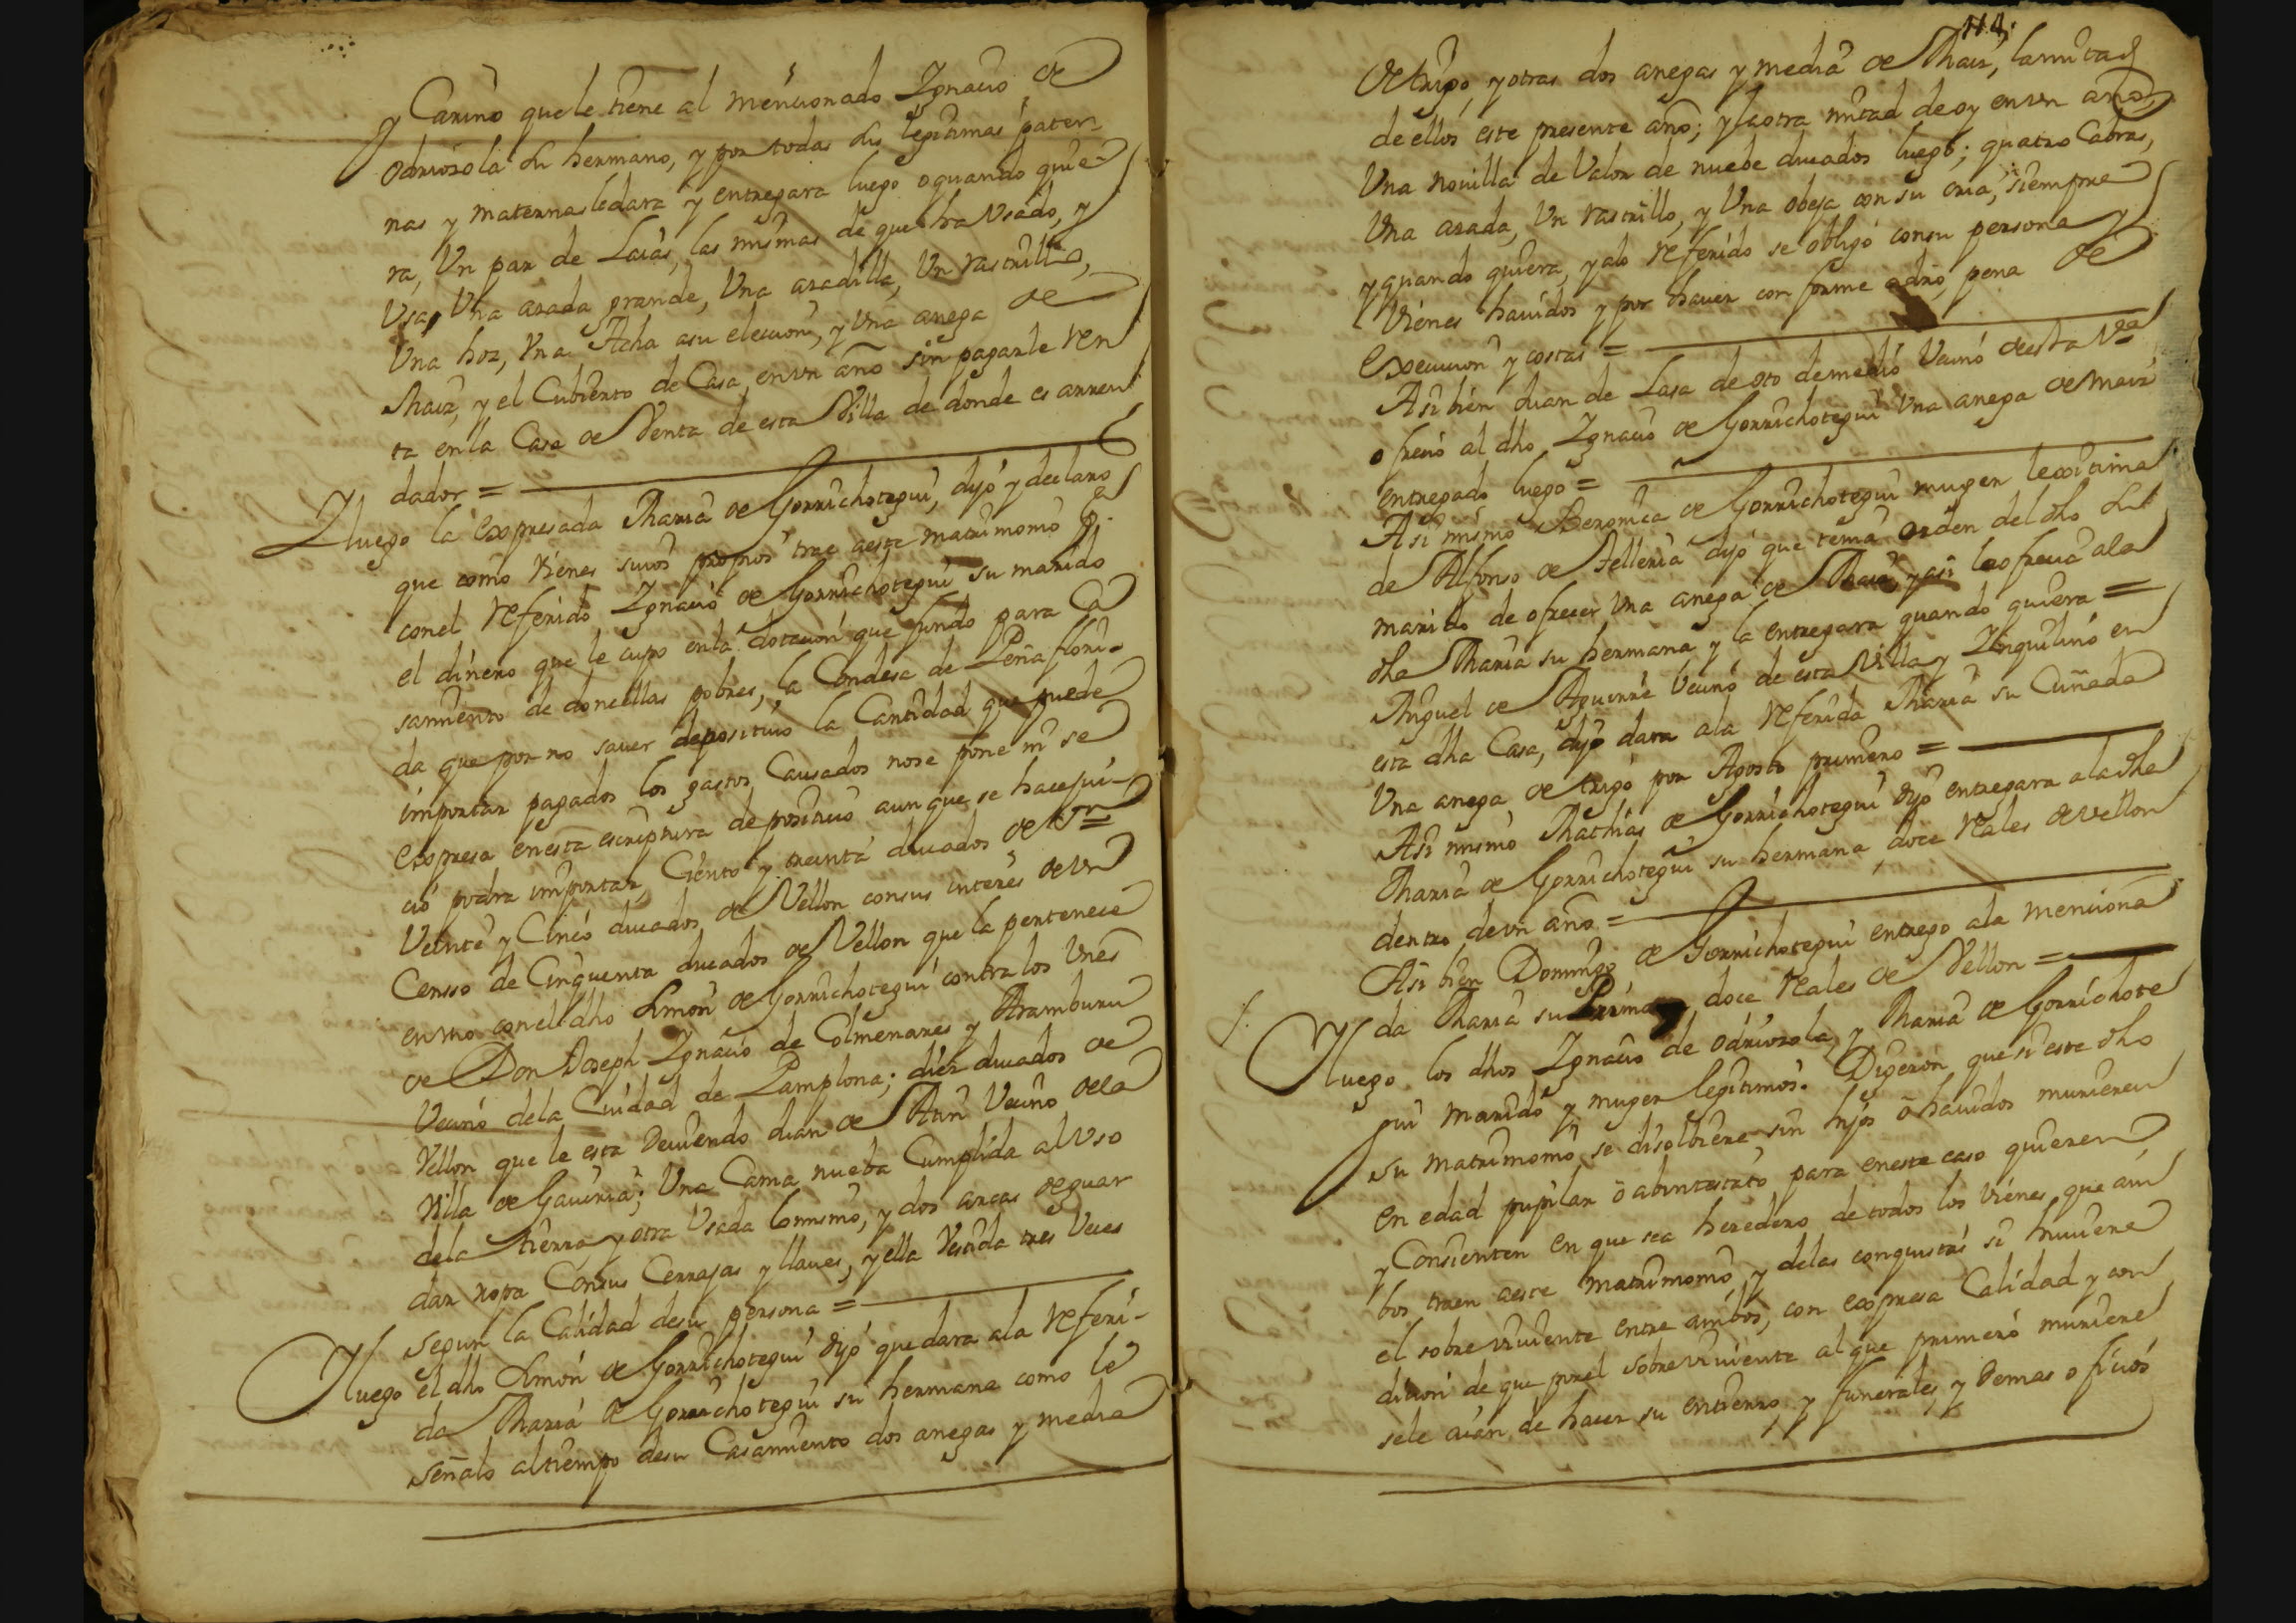 y Carino que le tiene al mencionado Ygnacio de
Odriozola su hermano, y por todas sus legitimas pater-
nas y maternas le dara y entregara luego o quando quie-
ra, Un par de Laias, las mismas de que ha Usado, y
Usa, Una azada grande, Una azadilla, Un rastrillo,
Una hoz, Una Acha a su eleccion, y Una anega de
Maiz, y el Cubierto de Casa, en un año sin pagarle ren
ta en la Casa de Venta de esta Villa de donde es arren
dador =
Y luego la expresada Maria de Gorrichotegui, dijo y declaro
que como vienes suios propios trae a este matrimonio
con el referido Ygnacio de Gorrichotegui su marido
el dinero que le cupo en la dotacion que fundo para Ca
samiento de doncellas pobres, la Condesa de Peña flori-
da que por no saver depositivo la Cantidad que puede
importar pagados los gastos Causados no se pone ni se
expresa en esta escriptura de positivo aunque se hace jui-
cio podra importar, Ciento y treinta ducados de Vn
Veinte y Cinco ducados de Vellon con sus interes de Un
Censso de Cinquenta ducados de Vellon que la pertenece
en uno con el dho Simon de Gorrichotegui contra los Vnes
de Don Joseph Ygnacio de Colmenares y Aramburu
Vecino de la Ciudad de Pamplona; diez ducados de
Vellon que le esta deviendo Juan de Atin Vecino de la
Villa de Gaviria; Una Cama nueba Cumplida al Uso
de la tierra y otra Usada lo mismo, y dos arcas de guar
dar ropa Con sus Cerrajas y llaves, y ella Vestida tres Veces
segun la Calidad de su persona =
Y luego el dho Simon de Gorrichotegui dijo que dara a la referi-
da Maria de Gorrichotegui su hermana como le
señalo al tiempo de su Casamiento dos anegas y media
114.
de trigo, y otras dos anegas y media de Maiz, la mitad
de ellos este presente año; y la otra mitad de oy en un año,
Una novilla de Valor de nuebe ducados luego; quatro Cabras,
Una azada, Un rastrillo, y Una obeja con su cria, siempre
y quando quiera, y a lo referido se obligo con su persona y
Vienes havidos y por haver con forme a dro, pena de
execucion y costas =
Asi bien Juan de Lasa de oto de medio Vecino de esta Va
ofrecio al dho Ygnacio de Gorrichotegui Una anega de maiz
entregado luego =
Asi mismo Beronica de Gorrichotegui muger lexitima
de Alfonso de Telleria dijo que tenia orden del dho su
marido de ofrecer Una anega de Maiz, y asi lo ofrecia a la
dha Maria su hermana y la entregara quando quiera =
Miguel de Aguirre Vecino de esta Villa y Ynquilino en
esta dha Casa, dijo dara a la referida Maria su Cuñada
Una anega de trigo por Agosto primero =
Asi mismo Mathias de Gorrichotegui dijo entregara a la dha
Maria de Gorrichotegui su hermana doce reales de vellon
dentro de un año =
Asi bien Domingo de Gorrichotegui entrego a la menciona
da Maria su Prima, doce reales de Vellon =
Y luego los dhos Ygnacio de Odriozola, y Maria de Gorrichote
gui marido y muger legitimos. Digeron que si este dho
su matrimonio se disolbiere sin hijos o havidos murieren
en edad pupilar o abintestato para en este caso quieren
y Consienten en que sea heredero de todos los Vienes que am
bos traen a este matrimonio, y de las conquistas si huviere
el sobreviviente entre ambos, con expresa Calidad y con
dicion de que por el sobreviviente al que primero muriere
se le aian de hacer su entierro y funerales, y demas oficios